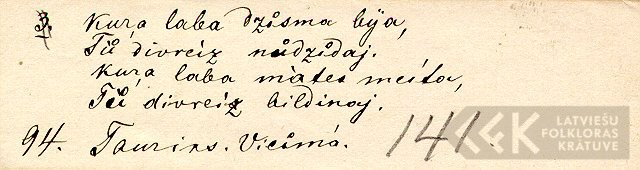 Kuŗa laba dzismа bÿa,
Tů divreiz nůdzidaj.
Kuŗa laba màtes meita,
Tů divreiz bildinaj.
94. Taurins. Vicėmå. 141.
LATVIEŠU
FOLKLORAS
KRĀTUVE